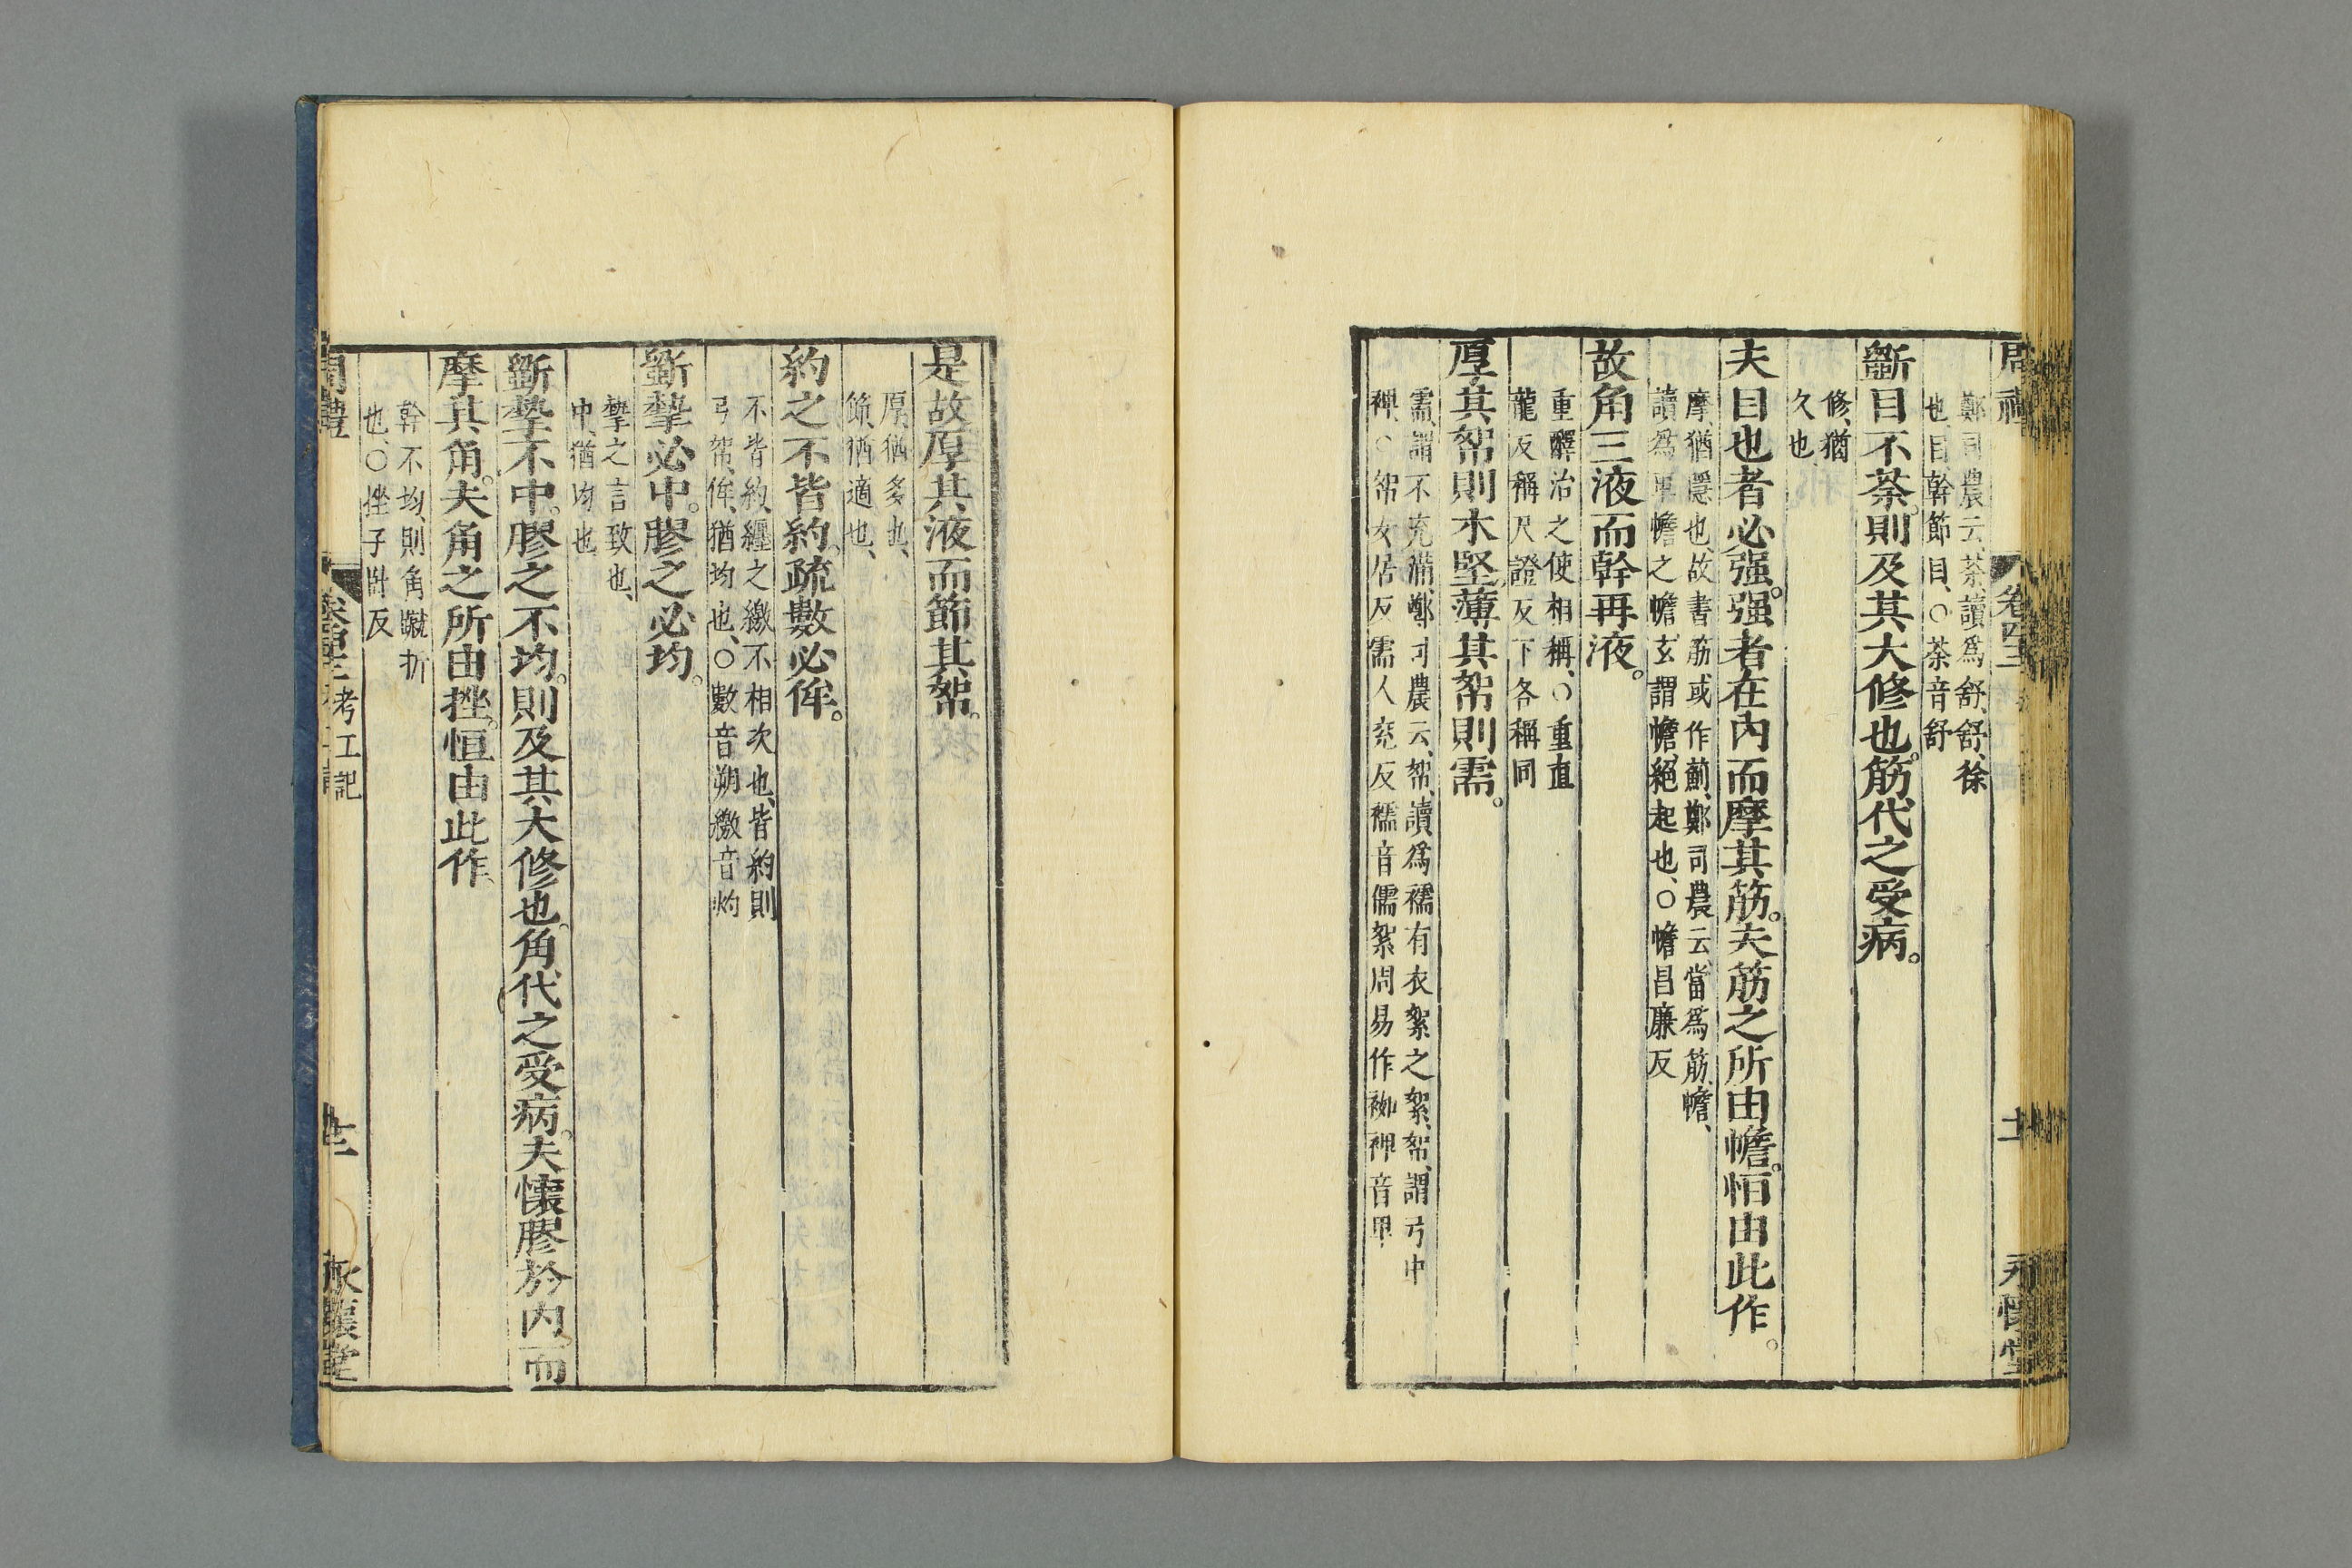 鄭司農云、荼、讀爲舒、舒、徐
也、目、幹節目、○荼音舒
斵目不荼。則及其大修也。筋代之受病。
修、猶
久也
夫目也者必强。强者在內而摩其筋。夫筋之所由幨。恒由此作。
摩、猶隱也、故書筋、或作薊、鄭司農云、當爲筋、幨、
讀爲車幨之幨、玄謂幨、絕起也、○幨昌廉反
故角三液而幹再液。
重醳治之使相稱、○重直
龍反稱尺證反下各稱同
厚其帤則木堅。薄其帤則需。
需、謂不充滿、鄭司農云、帤、讀爲襦有衣絮之絮、帤、謂弓中
裨、○帤女居反需人兗反襦音儒絮周易作袽裨音卑
是故厚其液而節其帤。
厚、猶多也、
節、猶適也、
約之不皆約。疏數必侔。
不皆約、纏之繳不相次也、皆約則
弓帤、侔、猶均也、○數音朔繳音灼
斵摯必中。膠之必均。
摯之言致也、
中、猶均也
斵摯不中。膠之不均。則及其大修也。角代之受病。夫懷膠於內而
摩其角。夫角之所由挫。恒由此作、
幹不均、則角蹴折
也、○挫子卧反
周禮 考工記 永懷堂